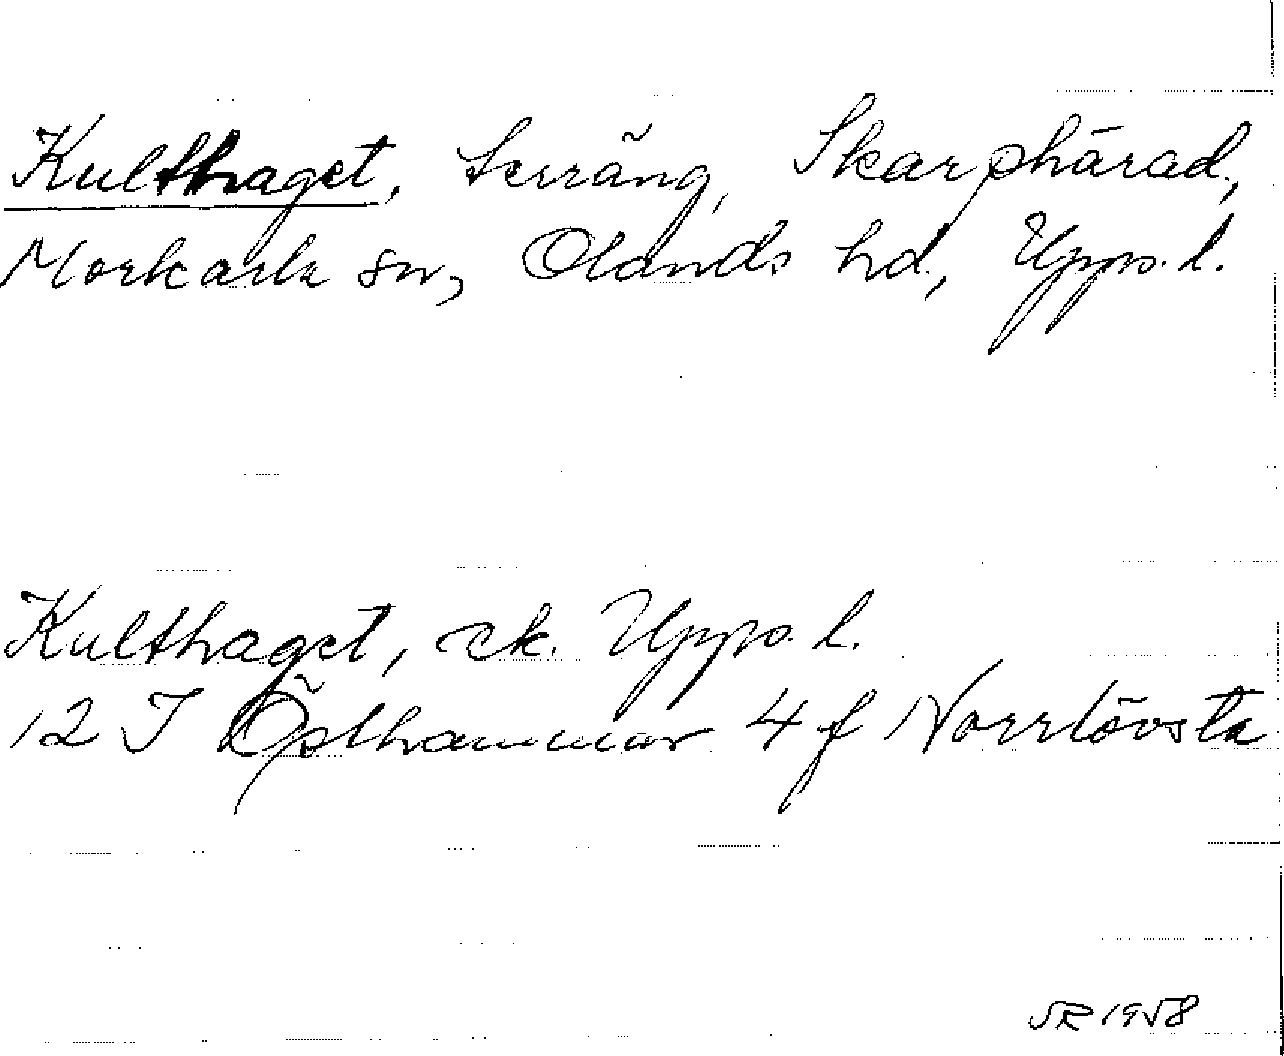 Kulthaget, terräng, Skarphärad,
Morkarla sn, Olands hd, Upps.l.
Kulthaget, ek. Upps. l.
12 I Östhammar 4 f Norrlövsta
SR 1958